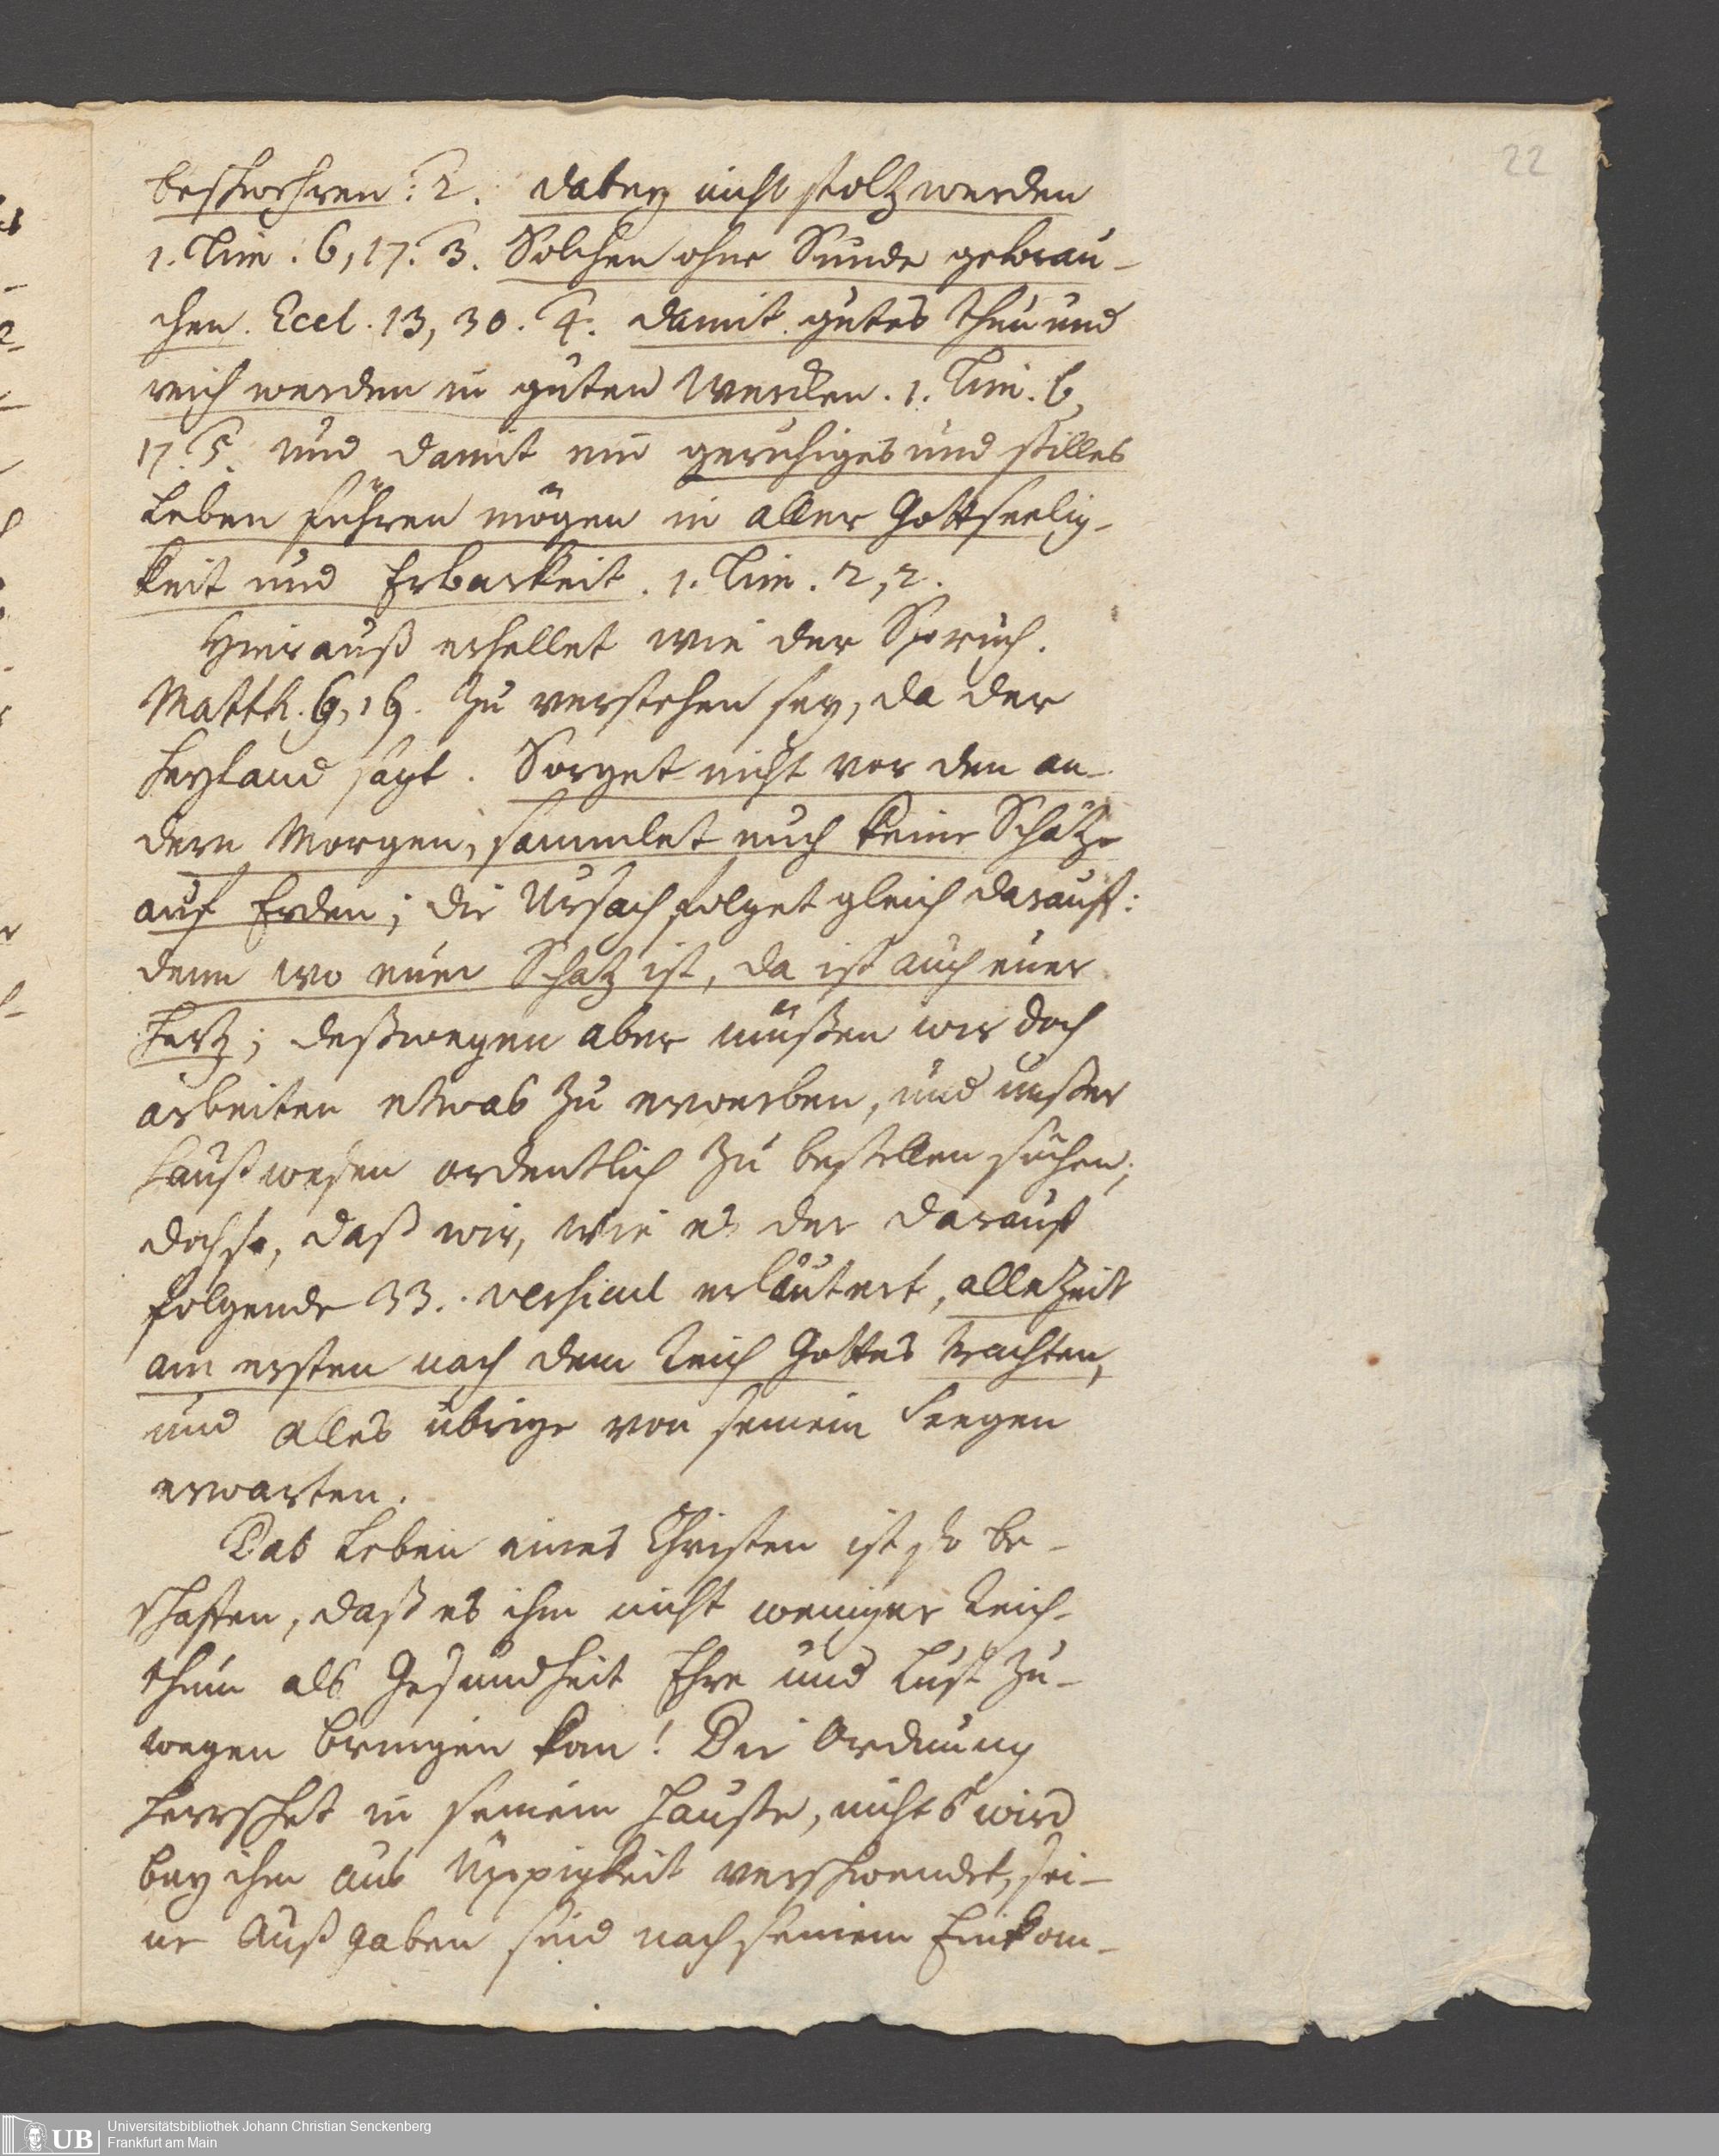 22
beschwehren: 2. dabey nicht stoltz werden
1. Tim. 6, 17. 3. Solchen ohne Sünde gebrau-
chen. Eccl. 13, 30. 4. damit gutes thun und
reich werden in guten Wercken. 1. Tim. 6,
17. 5. und damit ein geruhiges und stilles
Leben führen mögen in aller Gottseelig-
keit und Erbarkeit. 1. Tim. 2, 2.
Hierauß erhellet wie der Spruch.
Matth. 6, 19. zu verstehen sey, da der
Heyland sagt. Sorget nicht vor den an-
dern Morgen, sammlet euch keine Schätze
auf Erden; die Ursach folget gleich darauf:
denn wo euer Schatz ist, da ist auch euer
Hertz; deßwegen aber müßen wir doch
arbeiten etwas zu erwerben, und unßer
Haußweßen ordentlich zu bestellen suchen;
doch so, daß wir, wie es der darauf
folgende 33. versicul erläutert, allezeit
am ersten nach dem Reich Gottes trachten,
und alles übrige von seinem Seegen
erwarten.
Das Leben eines Christen ist so be-
schaffen, daß es ihm nicht weniger Reich-
thum als Gesundheit Ehre und Lust zu-
wegen bringen kan! Die Ordnung
herrschet in seinem Hauße, nichts wird
bey ihm aus Üppigkeit verschwendet, sei-
ne Außgaben sind nach seinem Einkom-
UB
Universitätsbibliothek Johann Christian Senckenberg
Frankfurt am Main